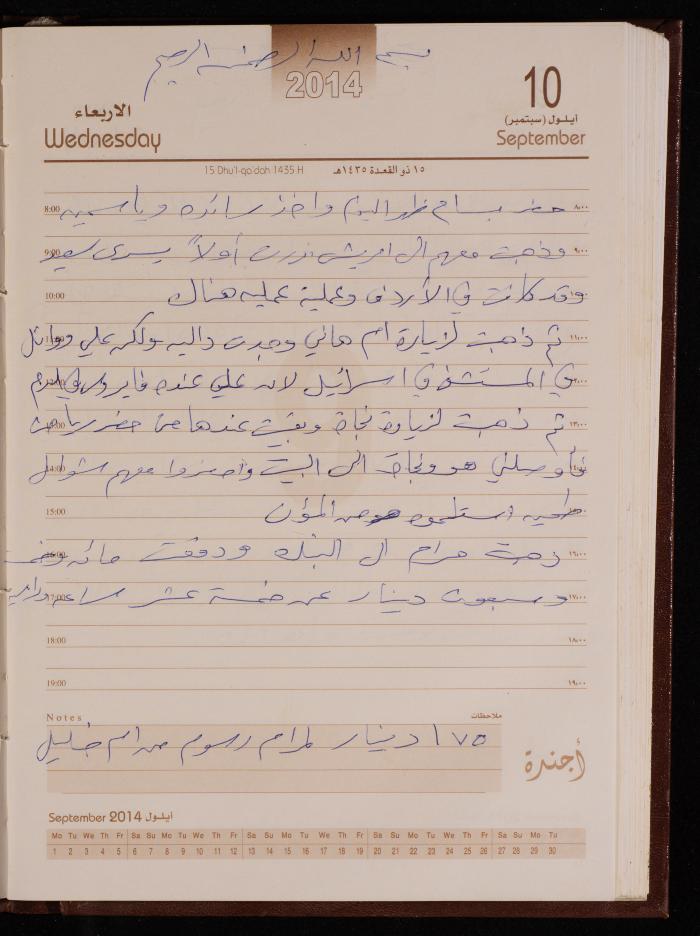 بسم الله الرحمن الرحيم
2014
10
الاربعاء
Wednesday
أيلول (سبتمبر)
September
15 Dhu'l-qa'dah 1435 H
١٥ ذو القعدة ١٤٣٥هـ
8:00 حضر بسام ظهر اليوم واخذ سائده وياسمين ٨:٠٠
9:00 وذهبت معهم الى زرت أولاً يسرى سعيد ٩:٠٠
10:00 وقد كانت في الأردن وعملية عمليه هناك
ثم ذهبت لزيارة ام هاني وجدت داليه ولكن علي ووائل ١١:٠٠
في المستشفى في اسرائيل لانه علي عنده فايروس في الدم
ثم ذهبت لزيارة نجاة وبقيت عندها حضر رياض
14:00 فأوصلني هو ونجاة الى البيت واحضروا معهم شوال
15:00 طحين استلموه من المؤن
ذهبت مرام الى البنك ودفعت مائه وخمسه ١٦:٠٠
17:00 وسبعون دينار عن خمسة عشر ساعه ١٧:٠٠
18:00 ١٨:٠٠
19:00 ١٩:٠٠
Notes ملاحظات
١٧٥ دينار لمرام رسوم من ام خليل
أجندة
September 2014 أيلول
Mo Tu We Th Fr Sa Su Mo Tu We Th Fr Sa Su Mo Tu We Th Fr Sa Su Mo Tu We Th Fr Sa Su Mo Tu
1 2 3 4 5 6 7 8 9 10 11 12 13 14 15 16 17 18 19 20 21 22 23 24 25 26 27 28 29 30